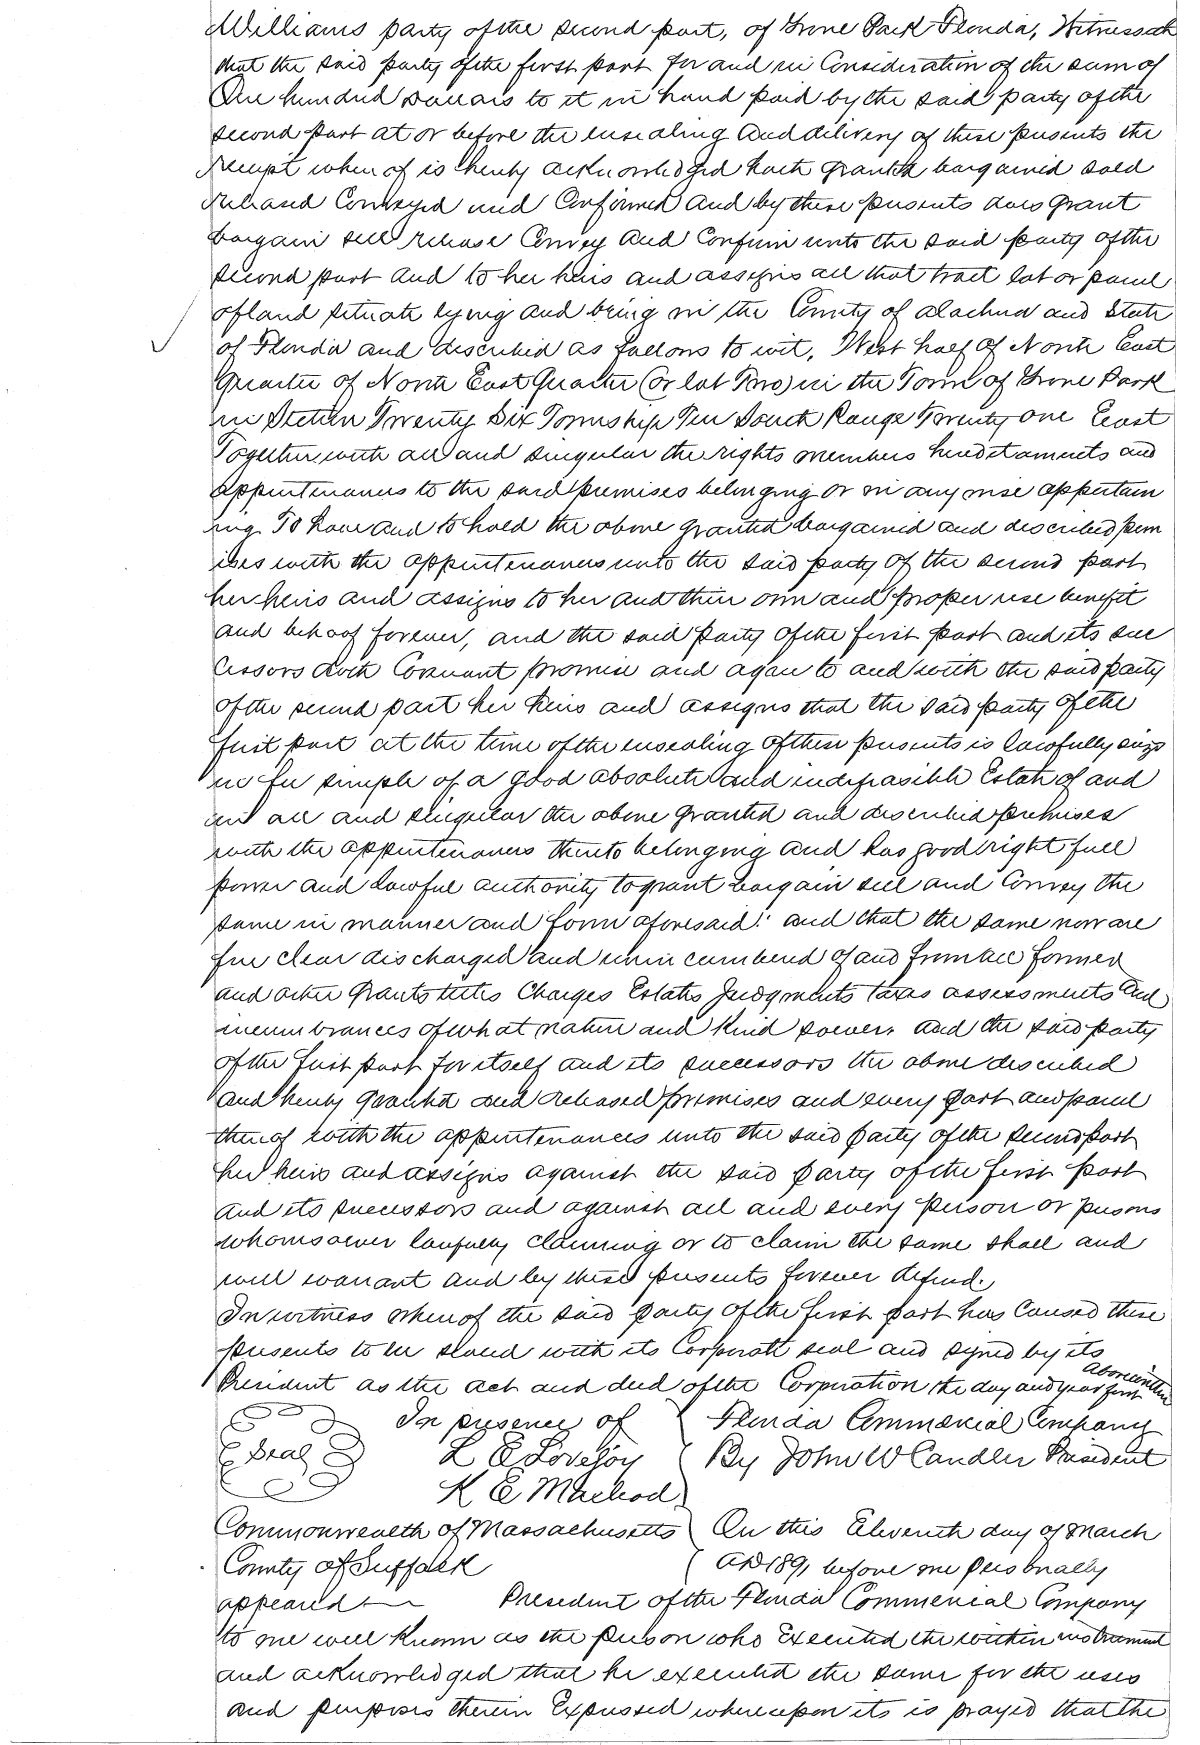 Williams party of the second part, of Grove Park Florida, Witnesseth
that the said party of the first part for and in Consideration of the sum of
One hundred Dollars to it in hand paid by the said party of the
second part at or before the ensealing and delivery of these presents the
receipt whereof is hereby acknowledged hath granted bargained sold
released Conveyed and Confirmed and by these presents does grant
bargain sell release Convey and Confirm unto the said party of the
second part and to her heirs and assigns all that tract lot or parcel
of land situate lying and being in the County of Alachua and State
of Florida and described as follows to wit, West half of North East
Quarter of North East Quarter (or lot Two) in the Town of Grove Park
in Section Twenty Six Township Ten South Range Twenty one East
Together with all and singular the rights members hereditaments and
appurtenances to the said premises belonging or in any wise appertain
ing To have and to hold the above granted bargained and described prem
ises with the appurtenances unto the said party of the second part
her heirs and assigns to her and their own and proper use benefit
and behoof forever, and the said party of the first part and its suc
cessors doth Covenant promise and agree to and with the said party
of the second part her heirs and assigns that the said party of the
first part at the time of the ensealing of these presents is lawfully seized
in fee simple of a good absolute and indefeasible Estate of and
in all and singular the above granted and described premises
with the appurtenances thereto belonging and has good right full
power and lawful authority to grant bargain sell and Convey the
same in manner and form aforesaid: and that the same now are
free clear discharged and unincumbered of and from all former
and other Grants titles Charges Estates Judgments taxes assessments and
incumbrances of what nature and kind soever. and the said party
of the first part for itself and its successors the above described
and hereby granted and released premises and every part and parcel
thereof with the appurtenances unto the said party of the second part
her heirs and assigns against the said party of the first part
and its successors and against all and every person or persons
whomsoever lawfully claiming or to claim the same shall and
will warrant and by these presents forever defend.
In witness whereof the said party of the first part has caused these
presents to be sealed with its Corporate seal and signed by its
President as the act and deed of the Corporation the day and year first above written
In presence of Florida Commercial Company
Seal L E Lovejoy By John W Candler President
K E Macleod
Commonwealth of Massachusetts On this Eleventh day of March
County of Suffolk AD 1891 before me personally
appeared President of the Florida Commercial Company
to me well known as the person who Executed the within instrument
and acknowledged that he executed the same for the uses
and purposes therein Expressed whereupon its is prayed that the